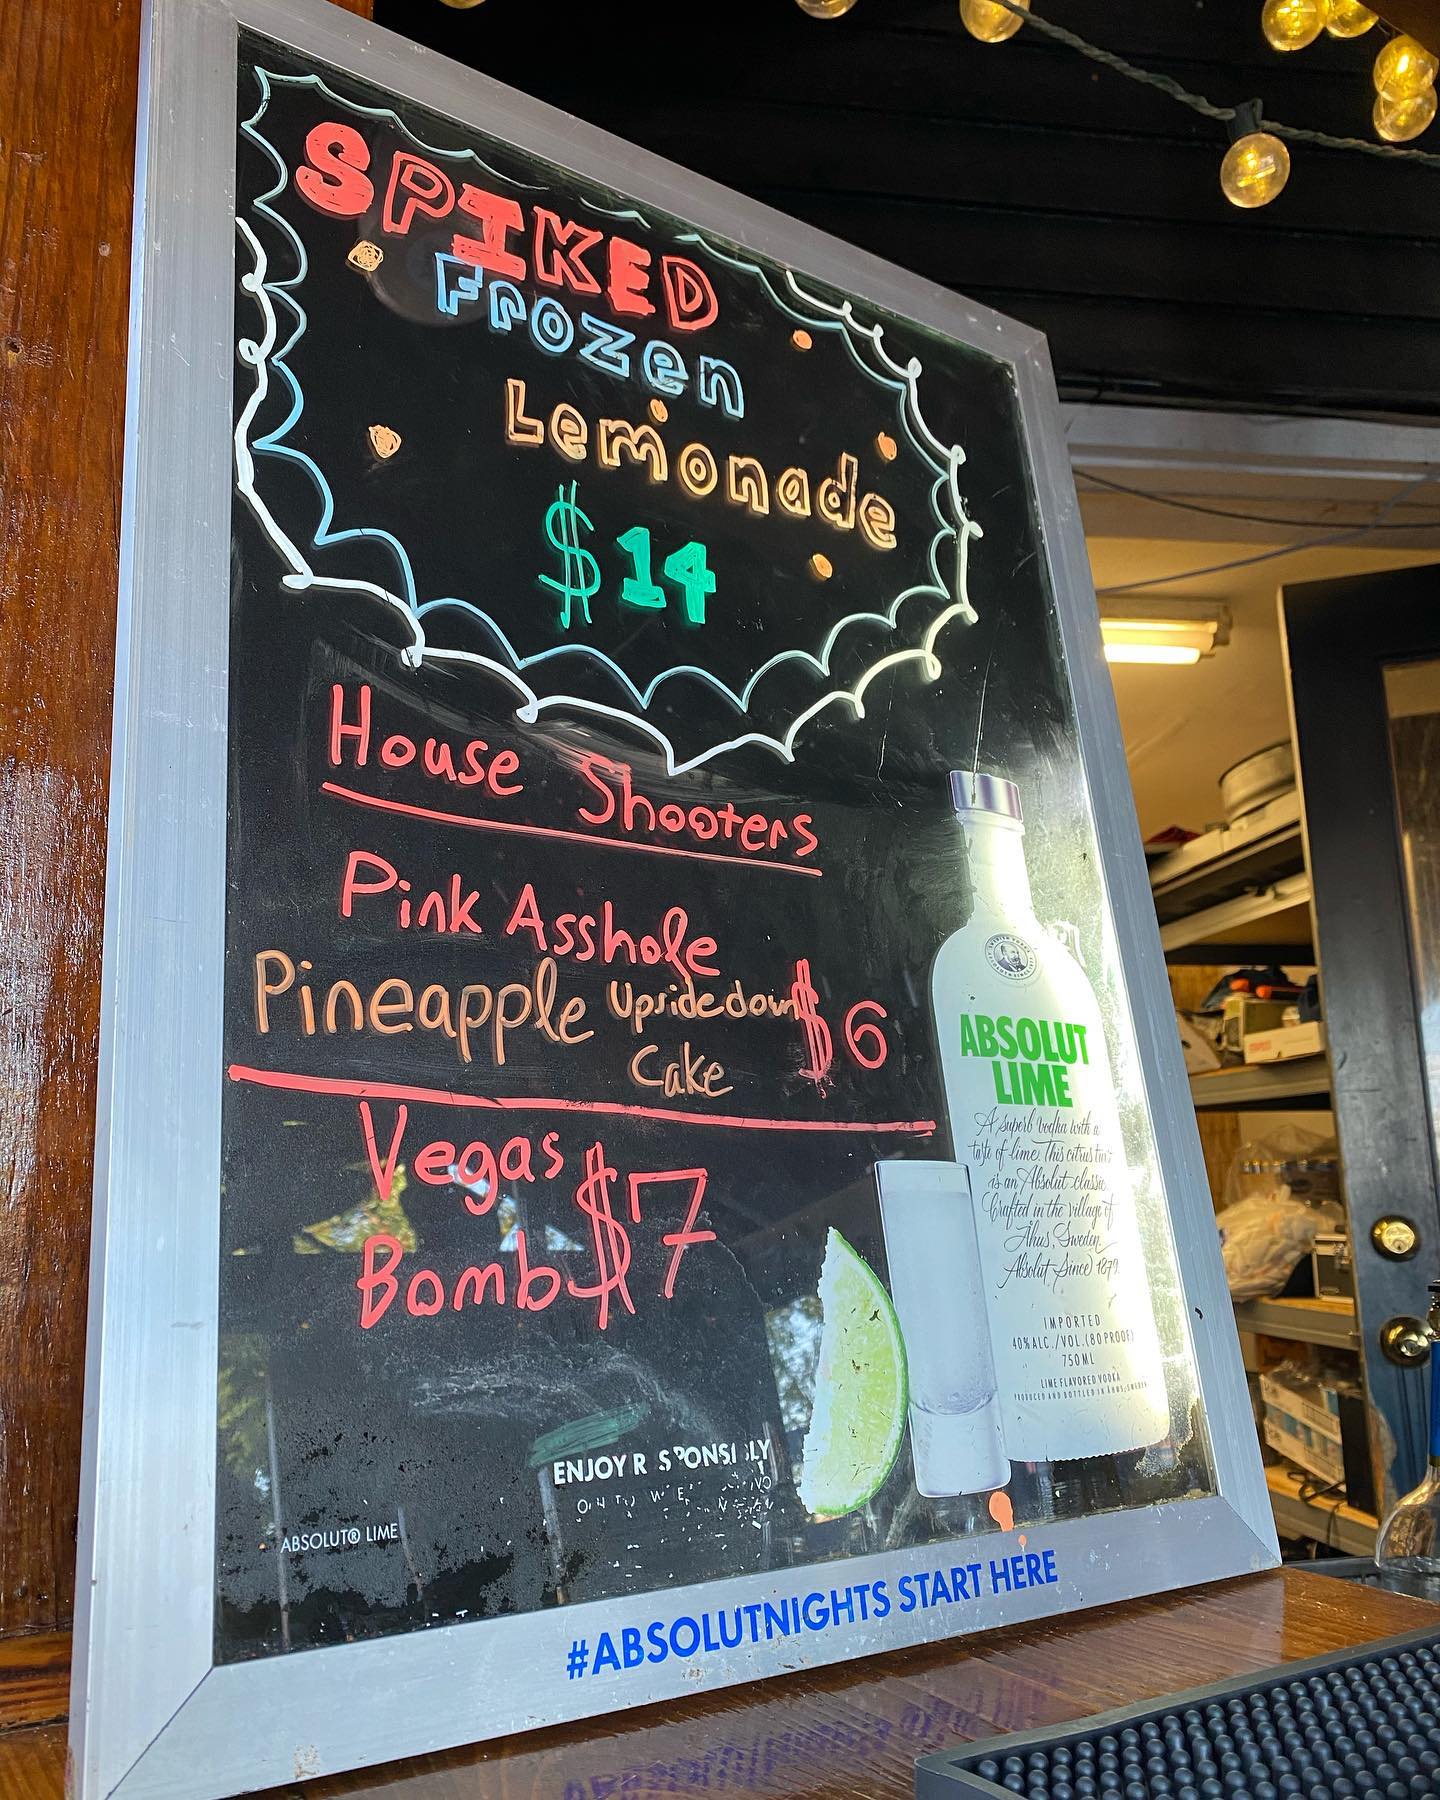 SPIKED
Frozen
Lemonade
$14
House Shooters
Pink Asshole
Pineapple Upsidedown
Cake
$6
Vegas
Bomb
$7
ABSOLUT
LIME
A superb vodka with a
taste of lime. This citrus
is an Absolut classic.
Crafted in the village of
Åhus, Sweden.
Absolut Since 1879.
IMPORTED
40%ALC./VOL.(80 PROOF)
750ML
LIME FLAVORED VODKA
PRODUCED AND BOTTLED IN ÅHUS, SWEDEN
ENJOY R SPONSI LY
ABSOLUT® LIME
#ABSOLUTNIGHTS START HERE